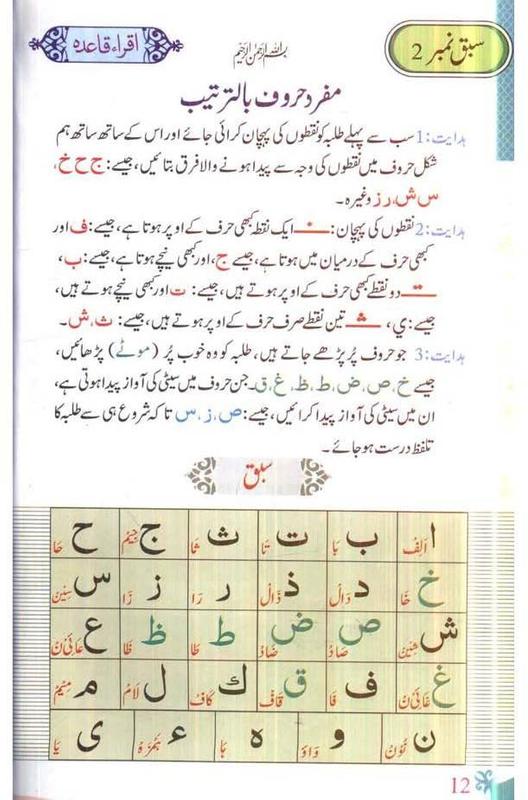 سبق نمبر 2
بسم اللہ الرحمٰن الرحیم
اقراء قاعدہ
مفرد حروف بالترتیب
ہدایت: 1 سب سے پہلے طلبہ کو نقطوں کی پہچان کرائی جائے اور اس کے ساتھ ساتھ ہم
شکل حروف میں نقطوں کی وجہ سے پیدا ہونے والا فرق بتائیں، جیسے: ج ح خ،
س ش، ر ز وغیرہ۔
ہدایت: 2 نقطوں کی پہچان: ایک نقطہ کبھی حرف کے اوپر ہوتا ہے، جیسے: ف اور
کبھی حرف کے درمیان میں ہوتا ہے، جیسے ج، اور کبھی نیچے ہوتا ہے، جیسے: ب،
دو نقطے کبھی حرف کے اوپر ہوتے ہیں، جیسے: ت اور کبھی نیچے ہوتے ہیں،
جیسے: ي، تین نقطے صرف حرف کے اوپر ہوتے ہیں، جیسے: ث، ش۔
ہدایت: 3 جو حروف پُر پڑھے جاتے ہیں، طلبہ کو وہ خوب پُر (موٹے) پڑھائیں،
جیسے خ، ص، ض، ط، ظ، غ، ق۔ جن حروف میں سیٹی کی آواز پیدا ہوتی ہے،
ان میں سیٹی کی آواز پیدا کرائیں، جیسے: ص، ز، س تاکہ شروع ہی سے طلبہ کا
تلفظ درست ہو جائے۔
سبق
ا اَلِفْ ب بَا ت تَا ث ثَا ج جِيْمْ ح حَا
خ خَا د دَالْ ذ ذَالْ ر رَا ز زَا س سِيْنْ
ش شِيْنْ ص صَادْ ض ضَادْ ط طَا ظ ظَا ع عَائِنْ
غ غَائِنْ ف فَا ق قَافْ ك كَافْ ل لَامْ م مِيْمْ
ن نُوْنْ و وَاوْ ه هَا ء هَمْزَهْ ى يَا
12